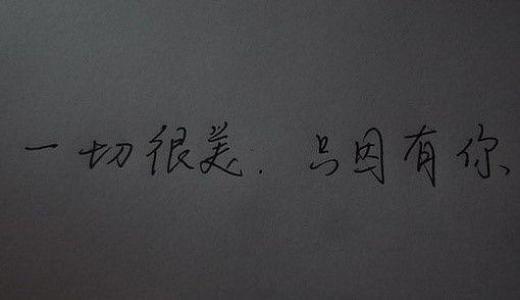 一切很美.只因有你